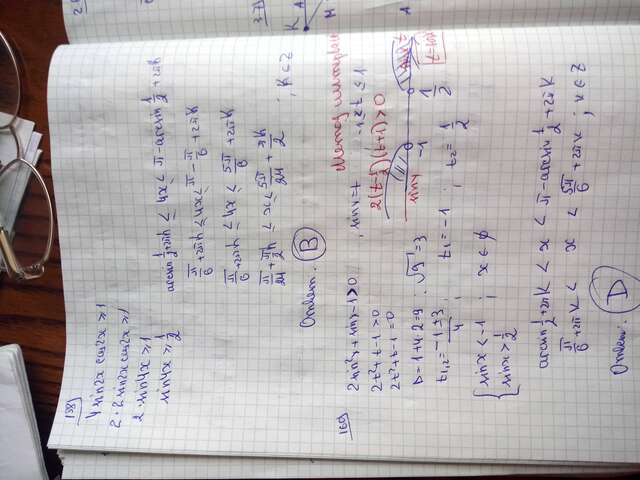 138)
4 sin2x cos2x ≥ 1
2·2 sin2x cos2x ≥ 1
2 · sin4x ≥ 1
sin4x ≥ 1/2
arcsin 1/2 + 2πk ≤ 4x ≤ π - arcsin 1/2 + 2πk
π/6 + 2πk ≤ 4x ≤ π - π/6 + 2πk
π/6 + 2πk ≤ 4x ≤ 5π/6 + 2πk
π/24 + πk/2 ≤ x ≤ 5π/24 + πk/2 ; k ∈ Z
Ответ: B
160)
2 sin²x + sinx - 1 > 0 ; sinx = t -1 ≤ t ≤ 1
2t² + t - 1 > 0
2t² + t - 1 = 0
Метод интервалов
2(t - 1/2)(t + 1) > 0
D = 1 + 4·2 = 9 ; √9 = 3
sinx -1 1/2
t₁,₂ = (-1 ± 3)/4 ; t₁ = -1 ; t₂ = 1/2
sinx < -1 ; x ∈ ∅
sinx > 1/2
arcsin 1/2 + 2πk < x < π - arcsin 1/2 + 2πk
π/6 + 2πk < x < 5π/6 + 2πk ; k ∈ Z
Ответ: D